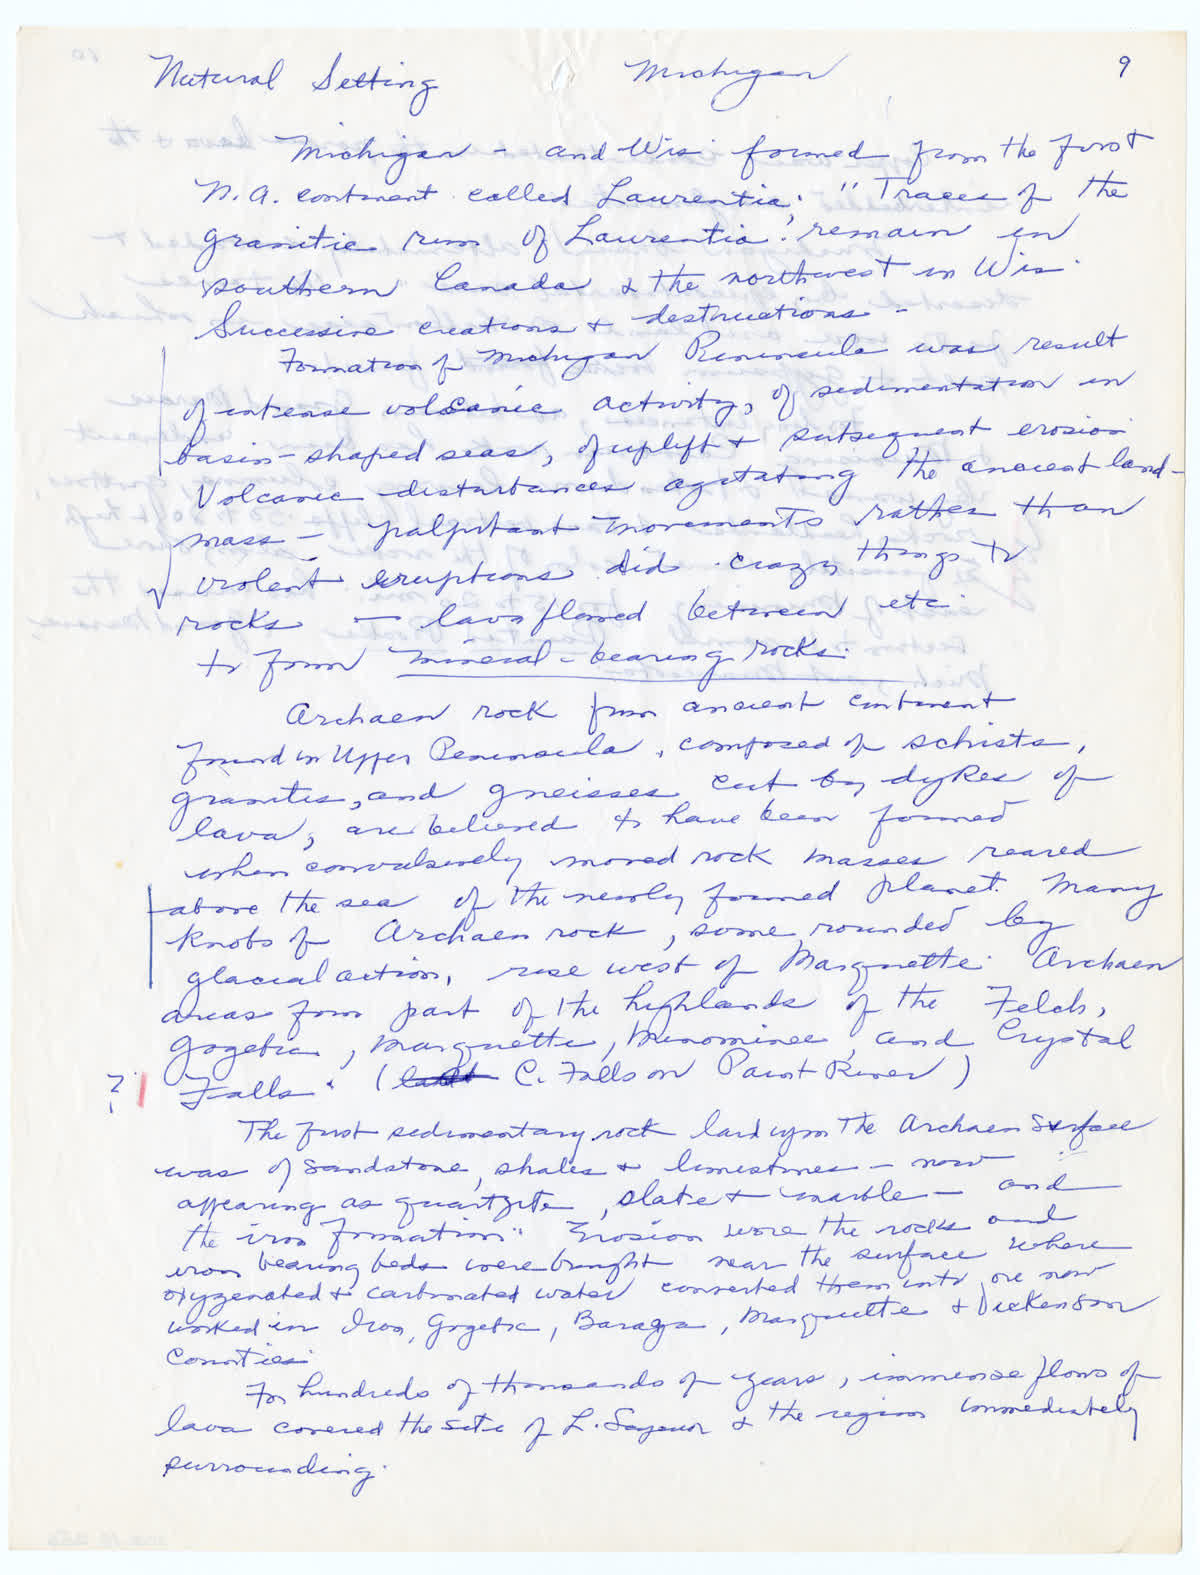 Natural Setting Michigan 9
Michigan - and Wis formed from the first
N.A. continent called Laurentia; "Traces of the
granitic rim of Laurentia." remain in
southern Canada & the northwest in Wis.
Successive creations & destructions -
Formation of Michigan Peninsula was result
of intense volcanic activity, of sedimentation in
basin-shaped seas, of uplift & subsequent erosion
Volcanic disturbances agitating the ancient land-
mass - palpitant movements rather than
violent eruptions did crazy things to
rocks - lava flowed between etc
to form mineral-bearing rocks.
Archaen rock from ancient continent
found in Upper Peninsula, composed of schists,
granites, and gneisses cut by dykes of
lava, are believed to have been formed
when convulsively moved rock masses reared
above the sea of the newly formed planet. Many
knobs of Archaen rock, some rounded by
glacial action, rise west of Marquette. Archaen
areas form part of the highlands of the Felch,
Gogebic, Marquette, Menominee, and Crystal
? Falls. ( C. Falls on Paint River)
The first sedimentary rock laid upon the Archaen Surface
was of sandstone, shales & limestones - now
appearing as quartzite, slate & marble - and
the iron formation." Erosion wore the rocks and
iron bearing beds were brought near the surface where
oxygenated & carbonated water converted them into ore now
worked in Iron, Gogebic, Baraga, Marquette & Dickenson
Counties.
For hundreds of thousands of years, immense flows of
lava covered the site of L. Superior & the region immediately
surrounding.